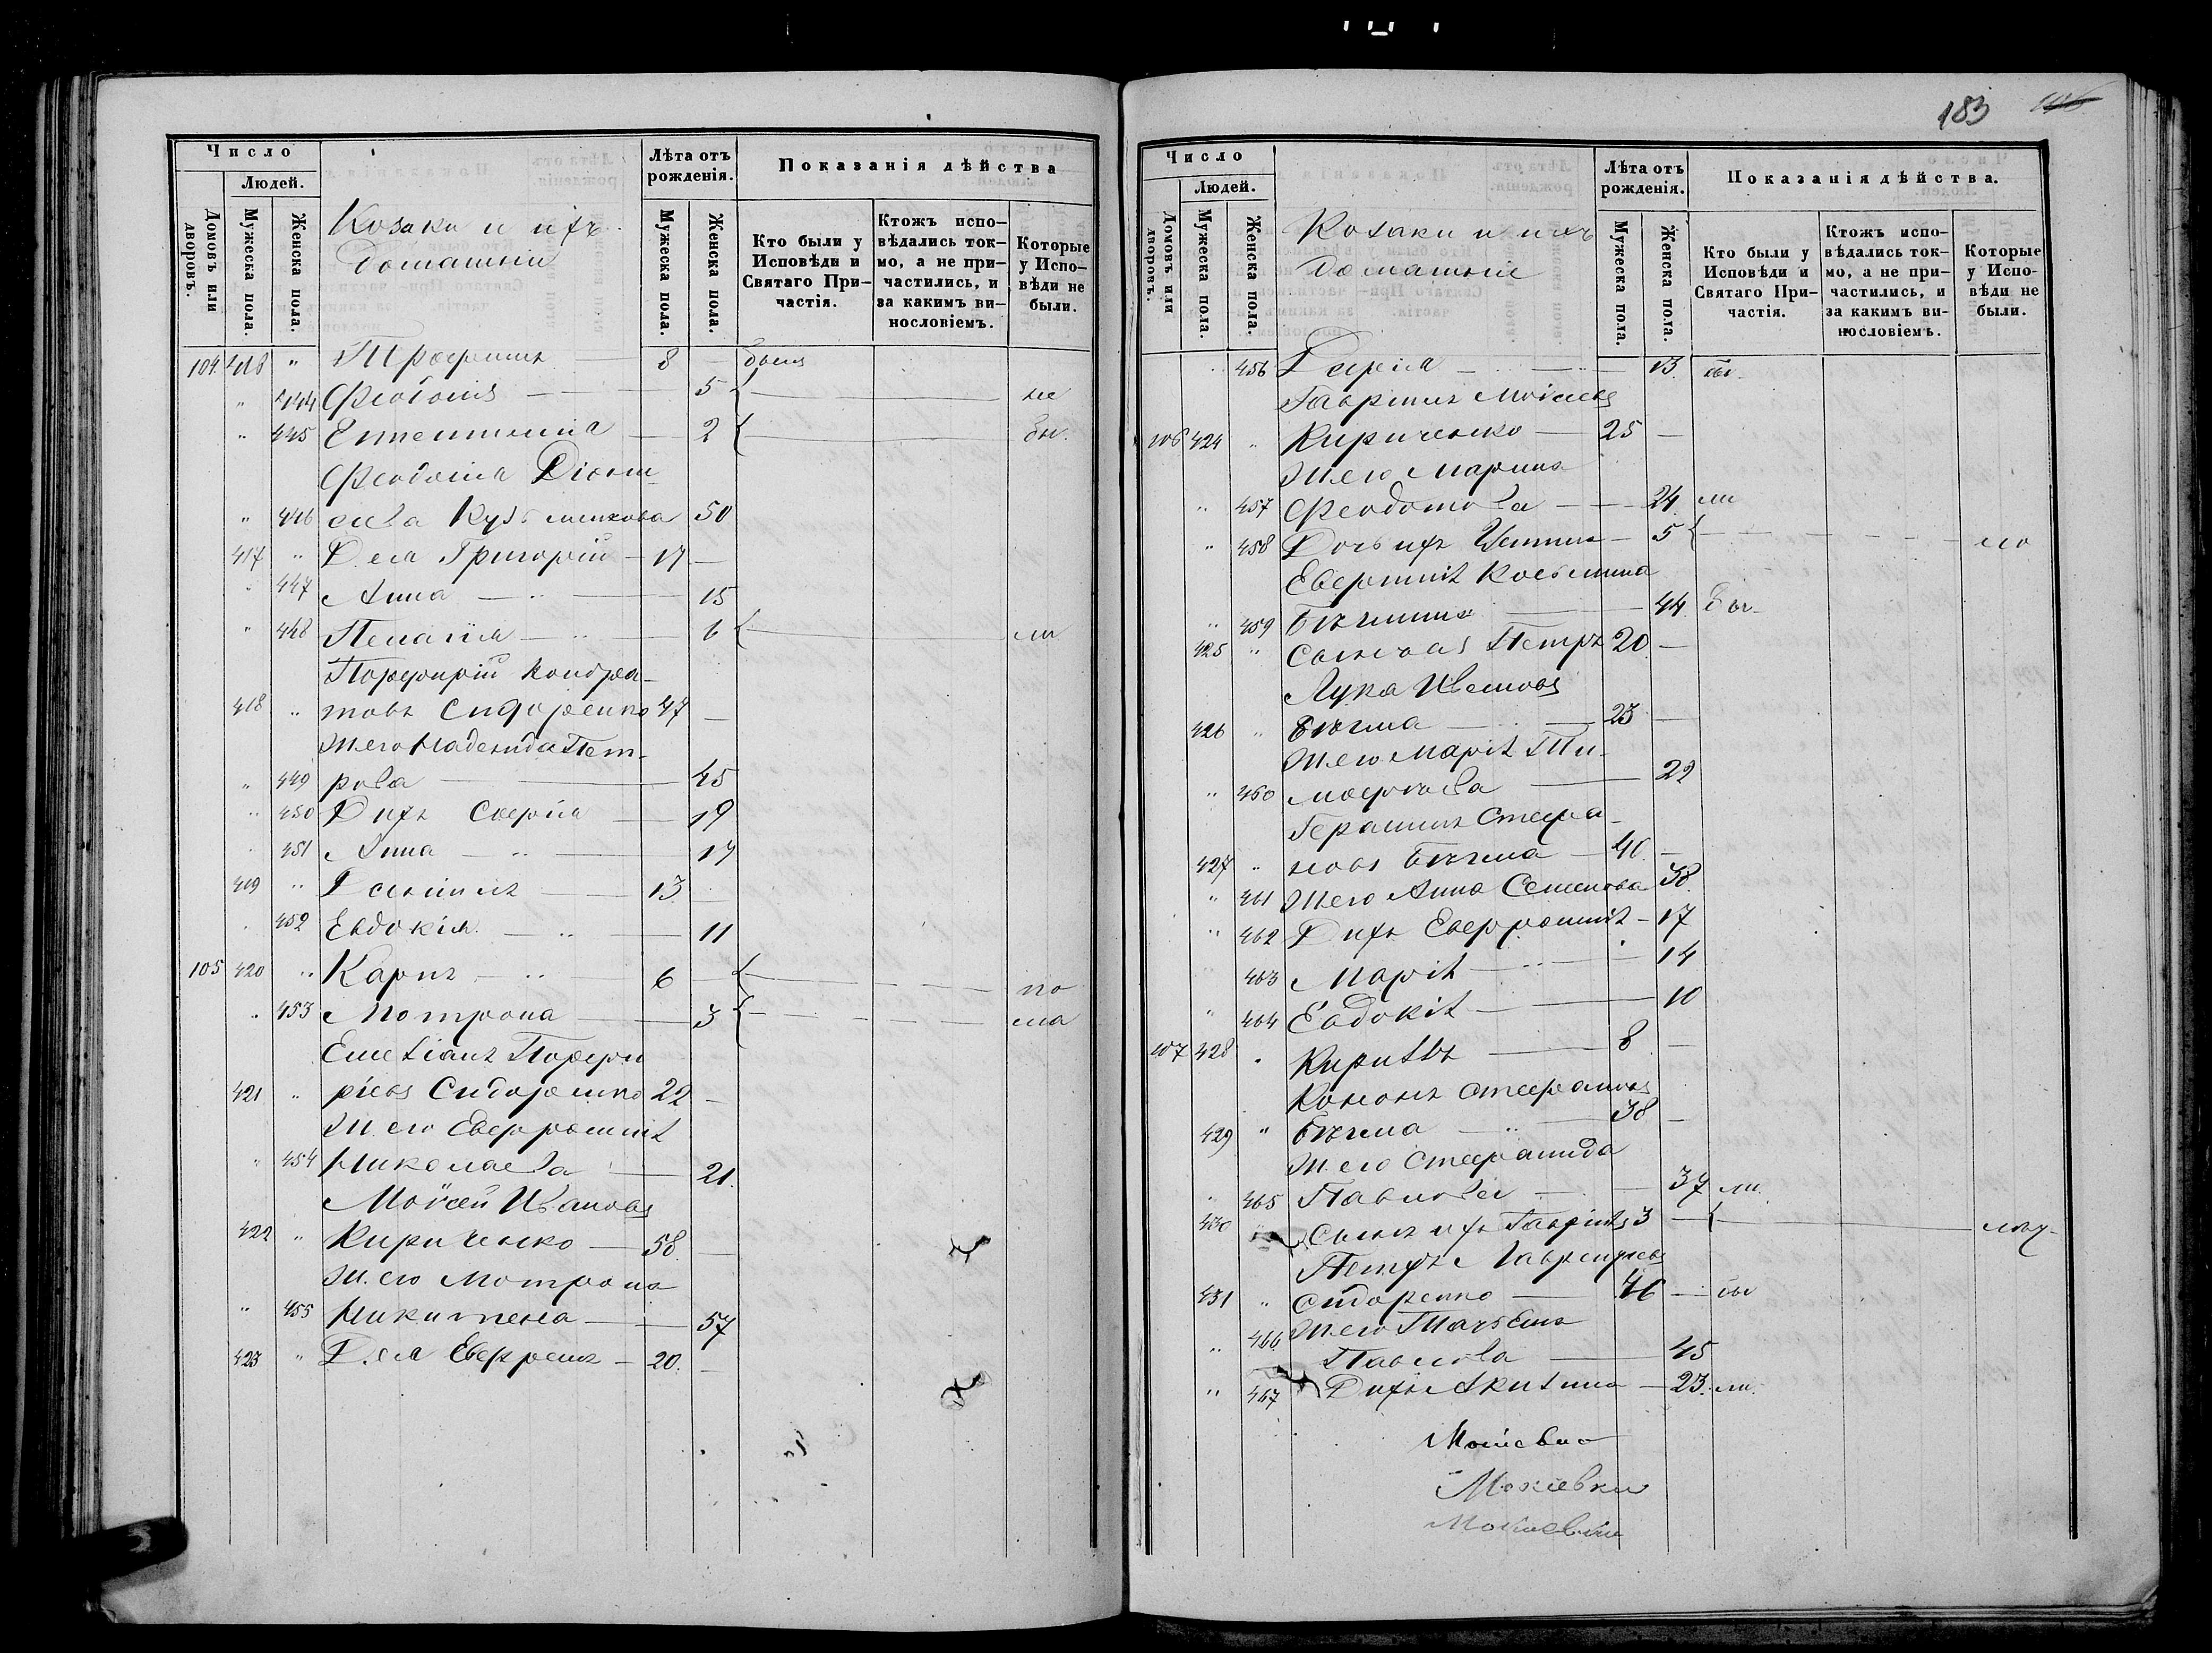 183
Число
Людей.
Домовъ или дворовъ.
Мужеска пола.
Женска пола.
Козаки и ихъ
домашніи
Лѣта отъ рожденія.
Мужеска пола.
Женска пола.
Показанія дѣйства
Кто были у Исповѣди и Святаго Причастія.
Ктожъ исповѣдались токмо, а не причастились, и за какимъ винословіемъ.
Которые у Исповѣди не были.
104 " Трофимъ 8 были
" 444 Феодосія 5 не
" 445 2 бы.
Феодосія Діони-
" 446 сіева 50
417 " Д. ея Григорій 17
" 447 Анна 15
" 448 Пелагія 6 ли
Порфирій Кондра-
418 " товъ Сидоренко 47
Ж его Надежда Пет-
" 449 рова 45
" 450 Д ихъ Софія 19
451 Анна 17
419 " Даніилъ 13
452 Евдокія 11
105 420 " Карпъ 6 по
" 453 Мотрона 3 ма
Емеліанъ Порфи
421 " ріевъ Сидоренко 22
Ж. его Евфросинія
" 454 Николаева 21.
Моисей Ивановъ
422 " Кириченко 58
Ж. его Мотрона
" 455 Никитена 57
423 " Д. ея Евфремъ 20.
Число
Людей.
Домовъ или дворовъ.
Мужеска пола.
Женска пола.
Козаки и ихъ
домашніи
Лѣта отъ рожденія.
Мужеска пола.
Женска пола.
Показанія дѣйства.
Кто были у Исповѣди и Святаго Причастія.
Ктожъ исповѣдались токмо, а не причастились, и за какимъ винословіемъ.
Которые у Исповѣди не были.
456 Дарія 13 бы.
Гавріилъ Моисеев
106 424 " Кириченко 25
Ж его Марина
" 457 Феодотова 24 ли
" 458 Дочь ихъ 5 ло
Евфимія Косьмина
" 459 44 бы
425 " Сынъ ея Петръ 20
Лука Ивановъ
426 " 23
Ж его Марія Ти-
" 460 мофеева 22
Герасимъ Стефа-
427 " новъ 40
" 461 Ж его Анна Семенова 38.
" 462 Д ихъ Евфросинія 17
463 Марія 14
" 464 Евдокія 10
107 428 " Кириллъ 8
Кононъ Стефановъ
429 " 38
Ж его Стефанида
" 465 Павлова 37 ли.
430 " Сынъ ихъ Гавріилъ 3
Петръ Лаврентіев
431 " Сидоренко 46 бы
" 466 Ж его Татьяна
Павлова 45
" 467 Д ихъ Акилина 23. ли.